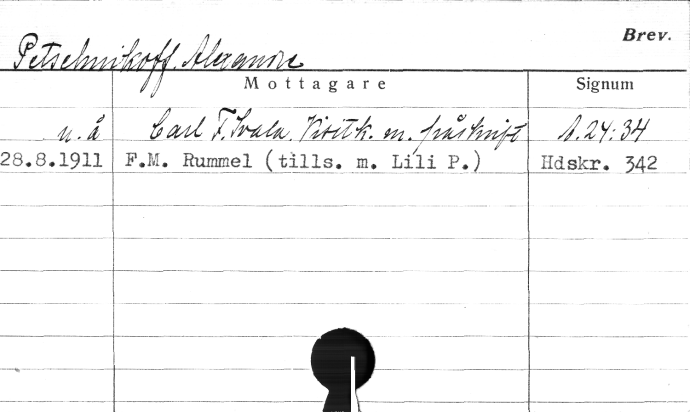 Brev.
Petschnikoff, Alexandre
Mottagare Signum
u. å Carl F. Svala. Visitk. m. påskrift A. 24:34
28.8.1911 F.M. Rummel (tills. m. Lili P.) Hdskr. 342